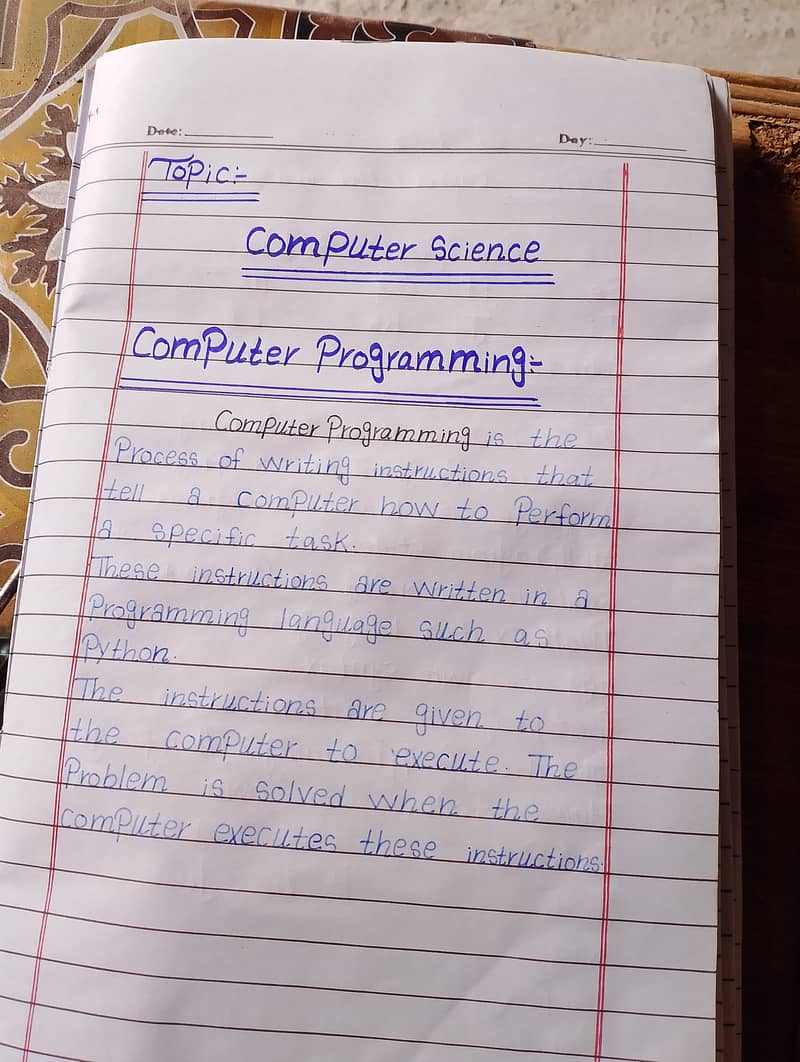 Date:
Day:
Topic:-
Computer Science
Computer Programming:-
Computer Programming is the
Process of writing instructions that
tell a computer how to Perform
a specific task.
These instructions are written in a
Programming language such as
Python.
The instructions are given to
the computer to execute. The
Problem is solved when the
computer executes these instructions.